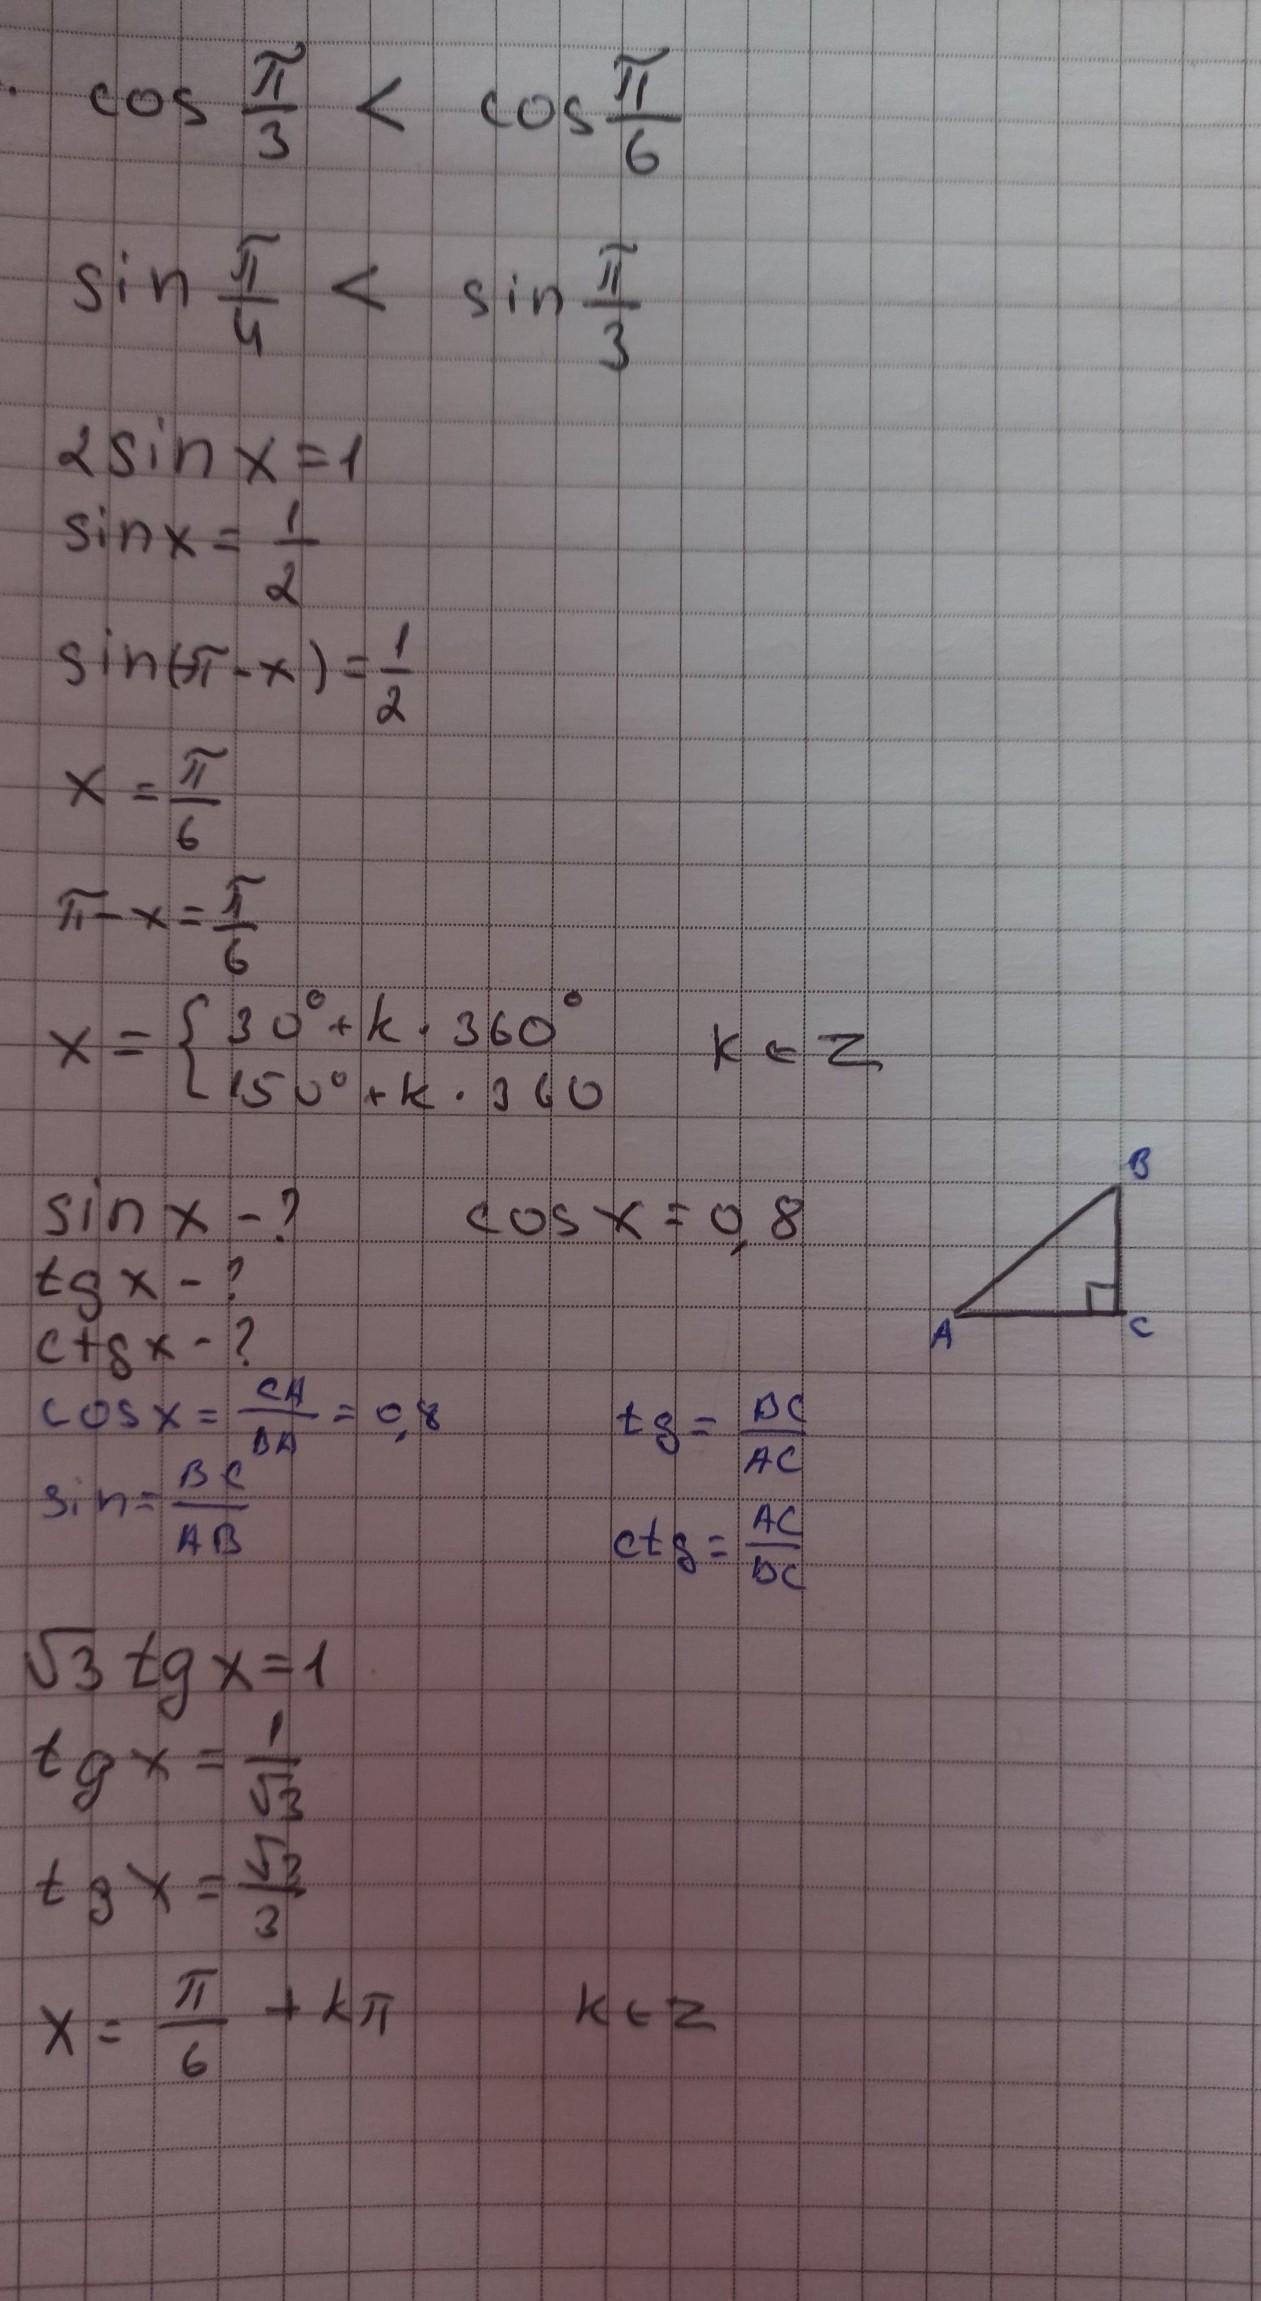 cos π/3 < cos π/6
sin π/4 < sin π/3
2sin x = 1
sin x = 1/2
sin(π - x) = 1/2
x = π/6
π - x = π/6
x = { 30° + k · 360°
150° + k · 360 k ∈ Z
sin x - ? cos x = 0,8
tg x - ?
ctg x - ?
B
A C
cos x = CA/BA = 0,8 tg = BC/AC
sin = BC/AB ctg = AC/BC
√3 tg x = 1
tg x = 1/√3
tg x = √3/3
x = π/6 + kπ k ∈ Z